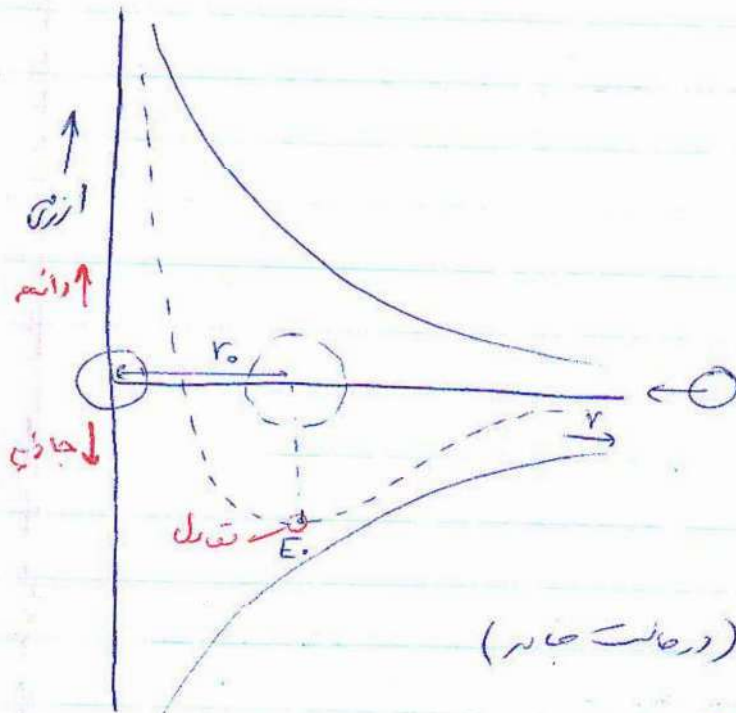 انرژی
دافعه
r₀
جاذبه
r
تعادل
E₀
(درحالت جامد)